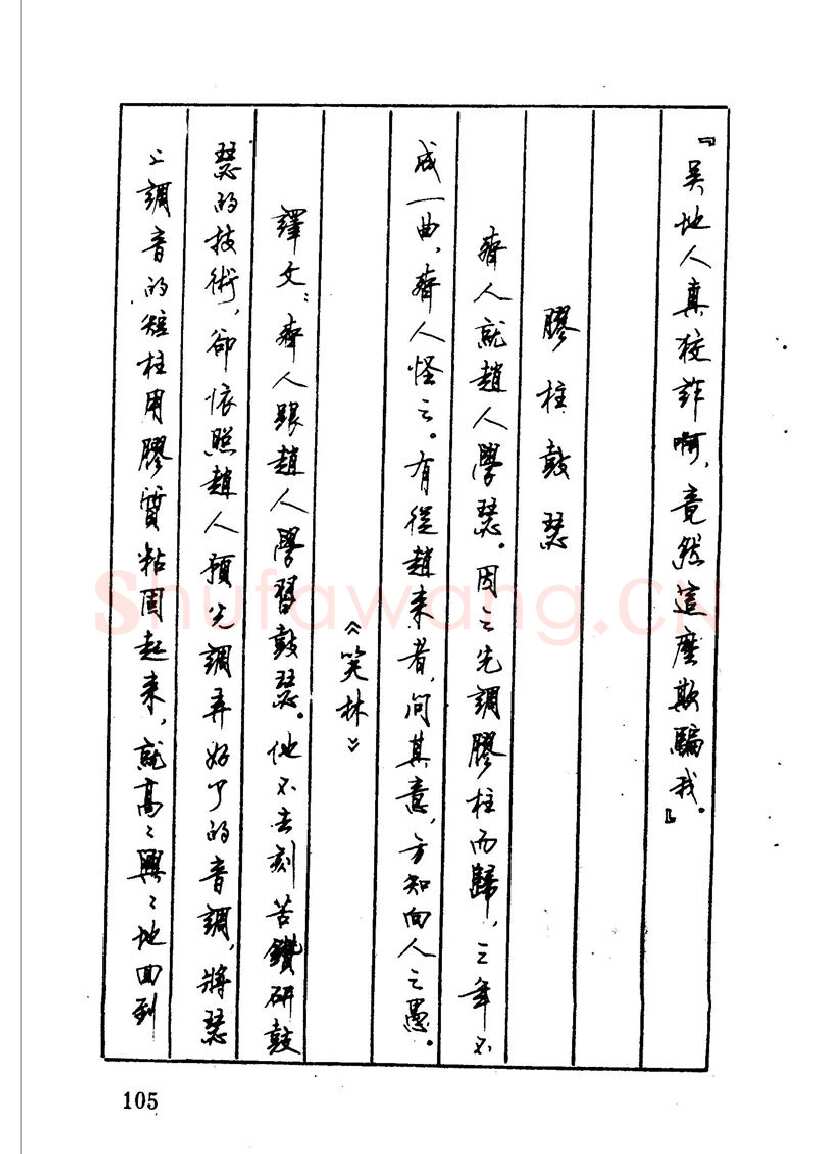 『吴地人真狡詐啊，竟然這麼欺騙我。』
膠柱鼓瑟
齊人就趙人學瑟。因之先調膠柱而歸，三年不
成一曲，齊人怪之。有從趙來者，问其意，方知向人之愚。
《笑林》
譯文：齊人跟趙人學習鼓瑟。他不去刻苦鑽研鼓
瑟的技術，卻依照趙人預先調弄好了的音調，將瑟
上調音的短柱用膠質粘固起来，就高〻興〻地回到
105
Shufawang.CN